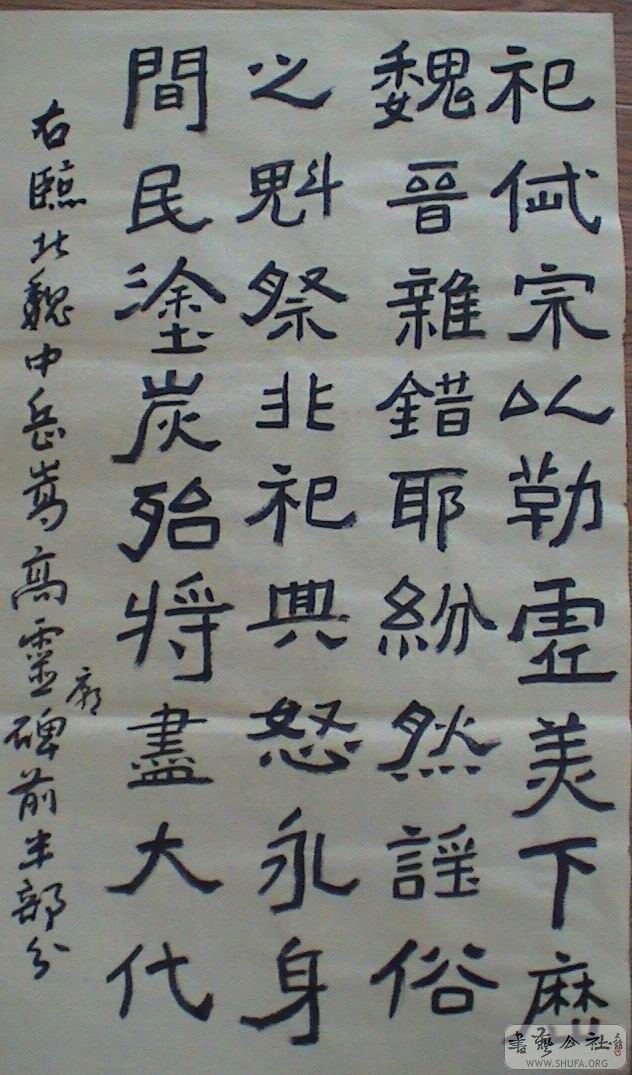 祀宗以勒美下
魏晉雜錯耶紛然謡俗
之魁祭非祀典怒永身
間民塗炭殆将盡大代
右臨北魏中岳嵩高靈廟碑前半部分
書藝公社
WWW.SHUFA.ORG